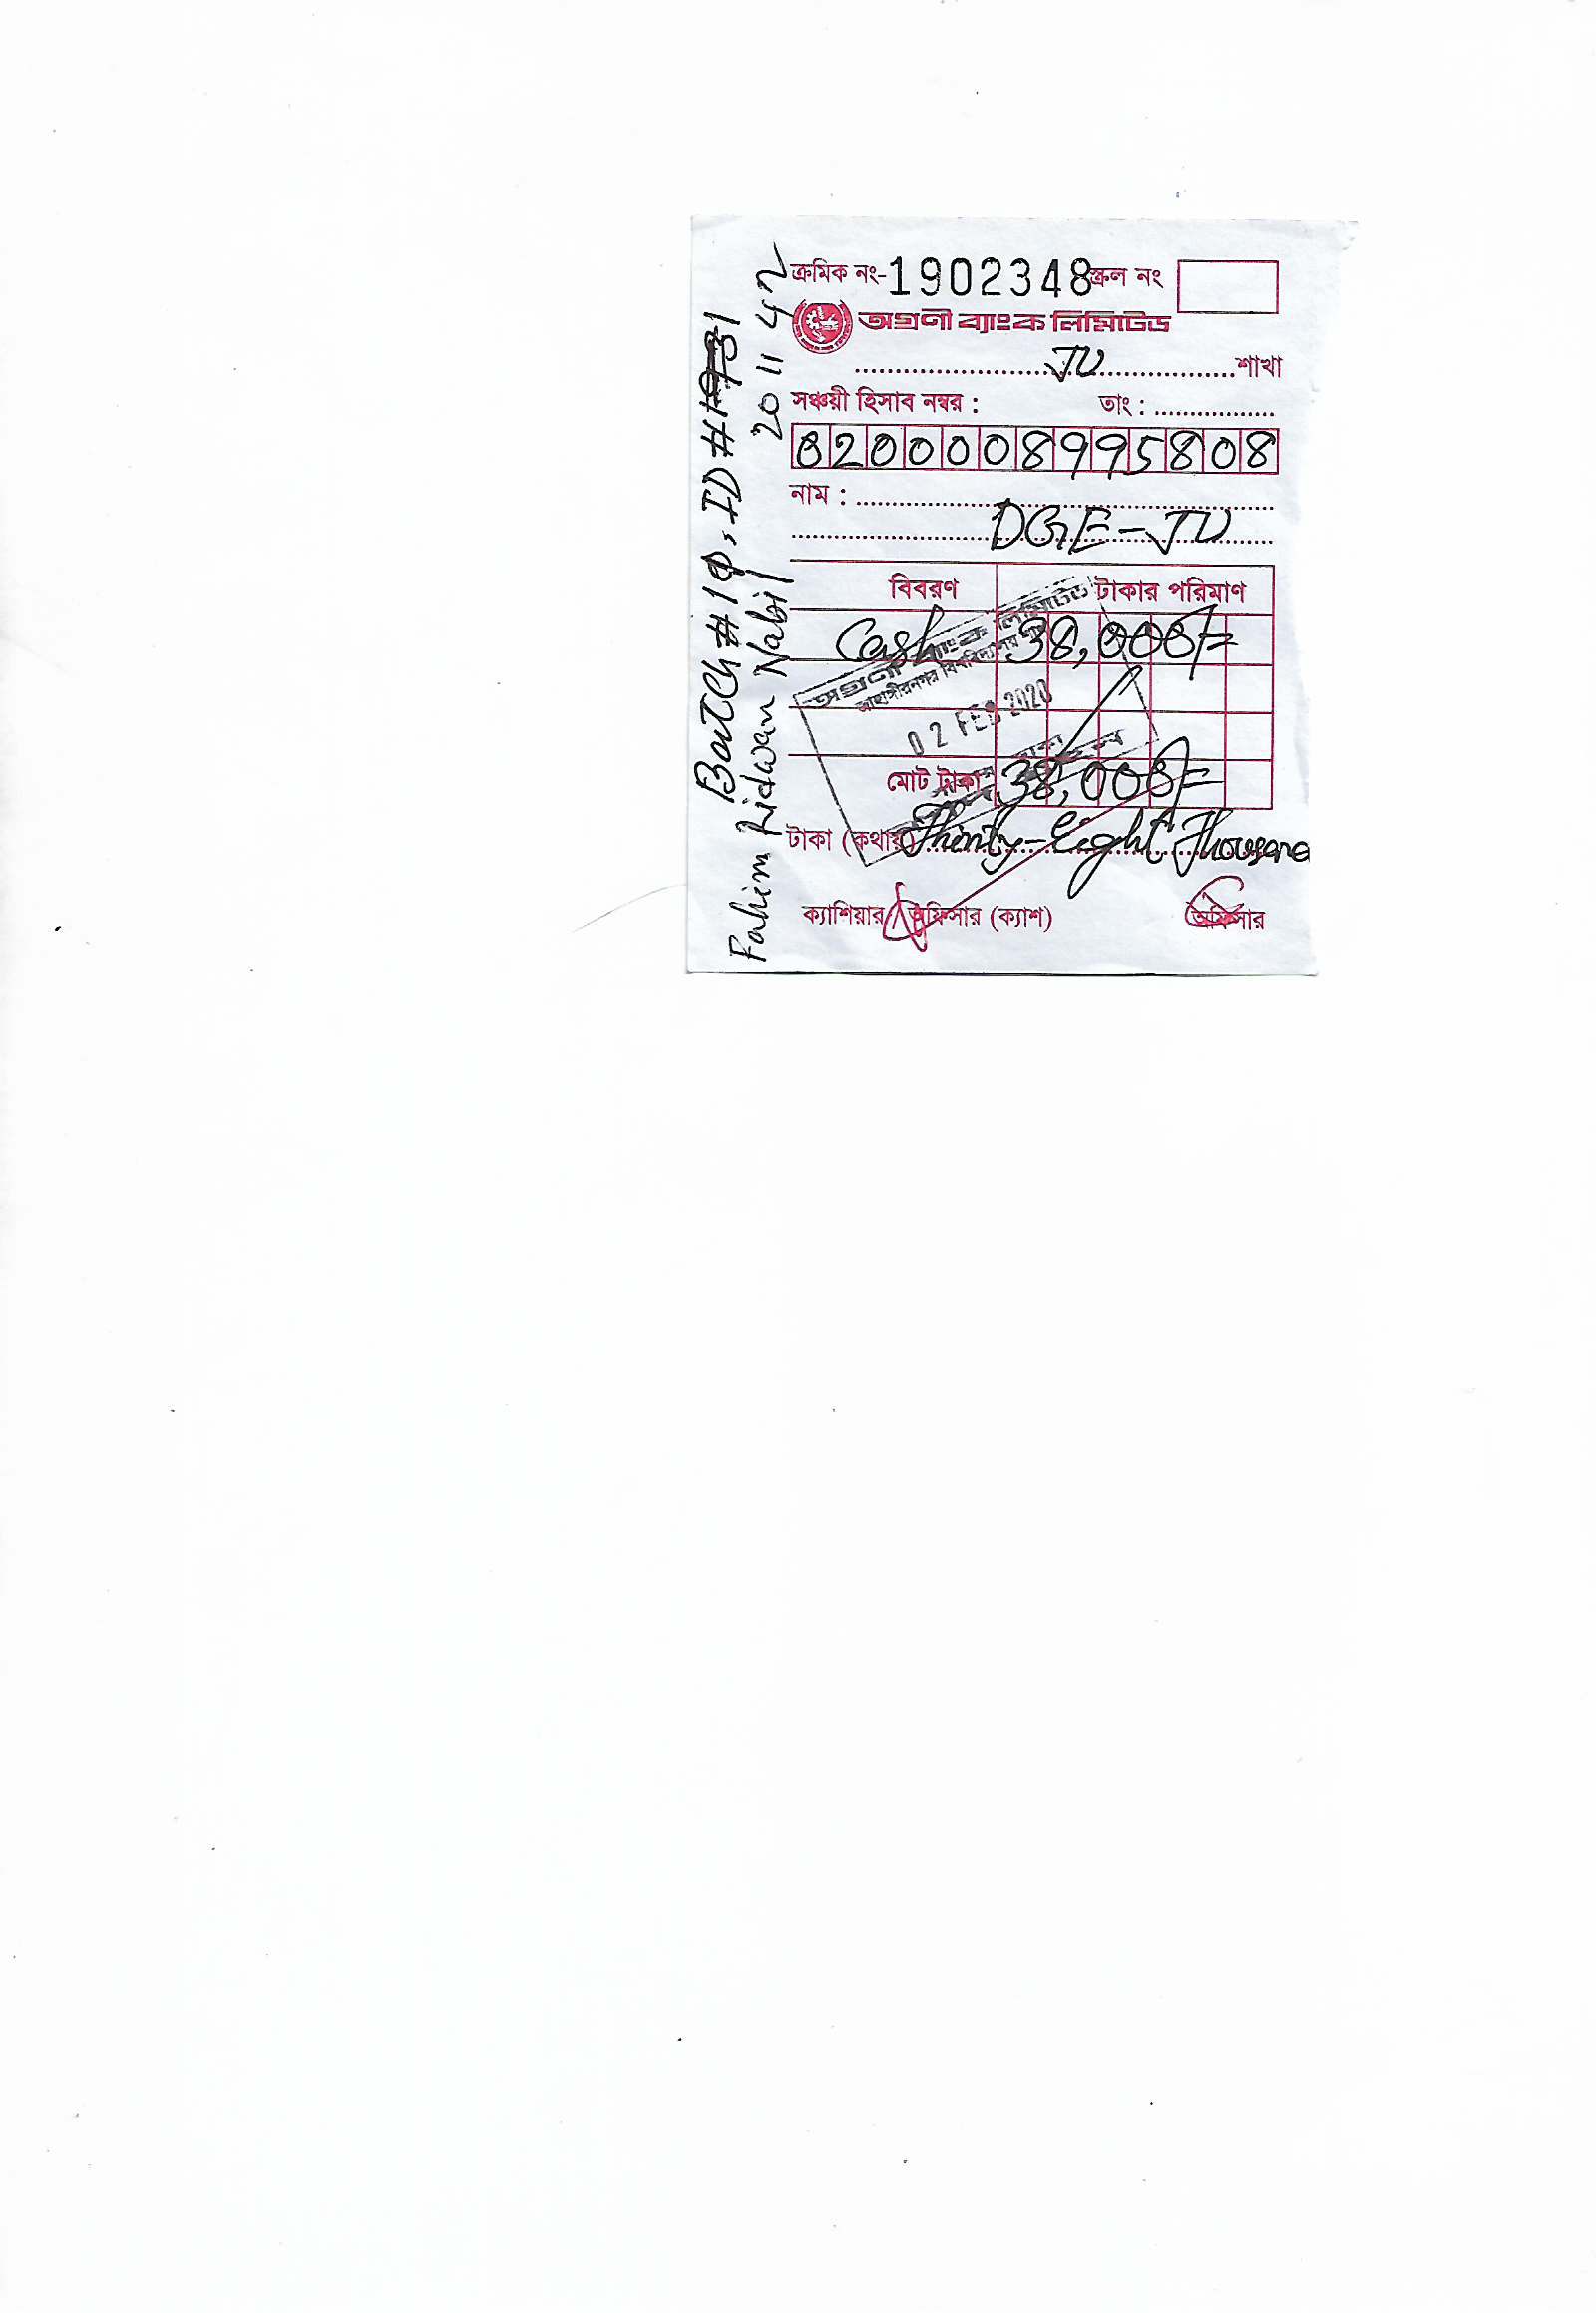 ক্রমিক নং-1902348 স্ক্রল নং
অগ্রণী ব্যাংক লিমিটেড
JU শাখা
সঞ্চয়ী হিসাব নম্বর : তাং :
0200008995808
নাম :
DGE-JU
বিবরণ টাকার পরিমাণ
Cash 38,000/=
মোট টাকা 38,000/=
টাকা (কথায়) Thirty-Eight Thousand
ক্যাশিয়ার/অফিসার (ক্যাশ) অফিসার
অগ্রণী ব্যাংক লিমিটেড
জাহাঙ্গীরনগর বিশ্ববিদ্যালয়
02 FEB 2020
Batch # 10, ID #
Fahim Ridwan Nabil
201142